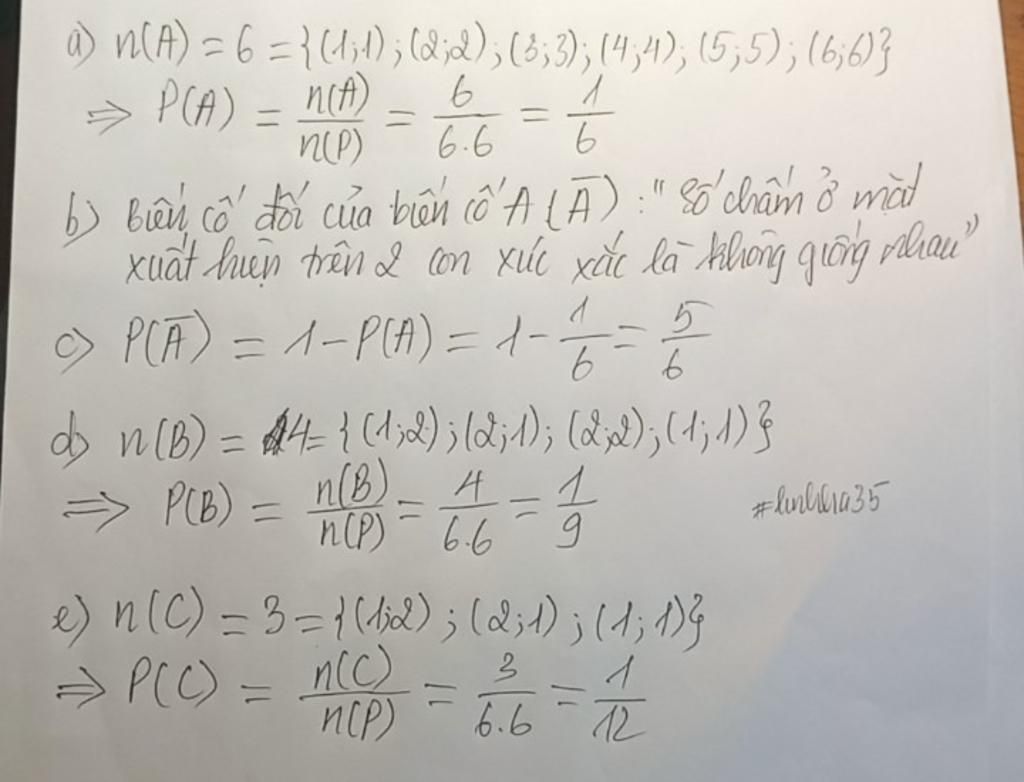 a) n(A) = 6 = {(1;1);(2;2);(3;3);(4;4);(5;5);(6;6)}
⇒ P(A) = n(A)/n(P) = 6/6.6 = 1/6
b) Biến cố đối của biến cố A (A̅): "Số chấm ở mặt
xuất hiện trên 2 con xúc xắc là không giống nhau"
c) P(A̅) = 1 - P(A) = 1 - 1/6 = 5/6
d) n(B) = 4 = {(1;2);(2;1);(2;2);(1;1)}
⇒ P(B) = n(B)/n(P) = 4/6.6 = 1/9
e) n(C) = 3 = {(1;2);(2;1);(1;1)}
⇒ P(C) = n(C)/n(P) = 3/6.6 = 1/12